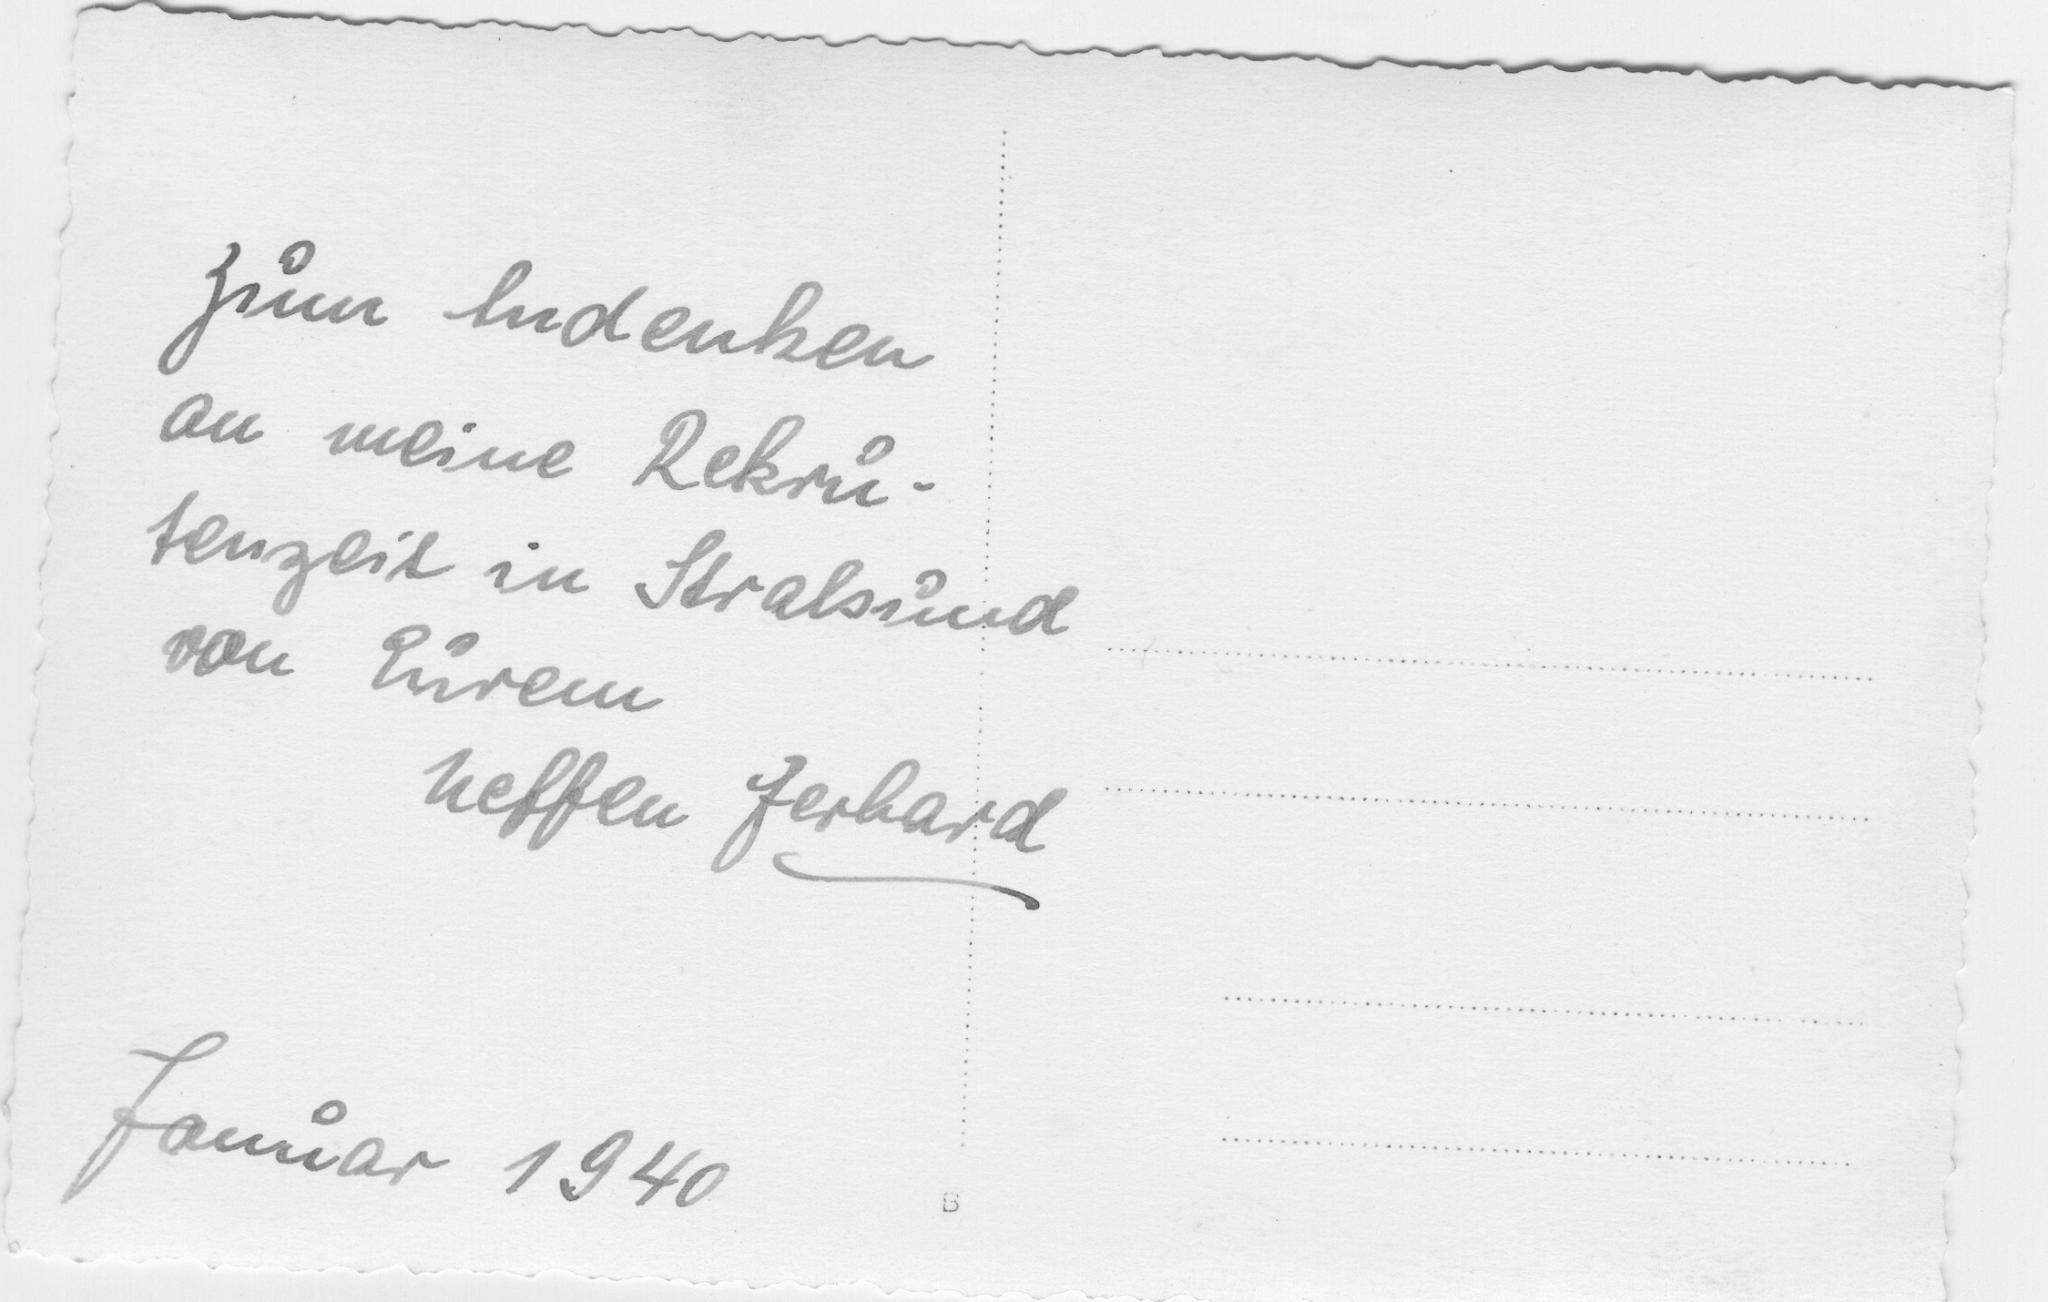 Zum Andenken
an meine Rekru-
tenzeit in Stralsund
von Eurem
Neffen Gerhard
Januar 1940
B